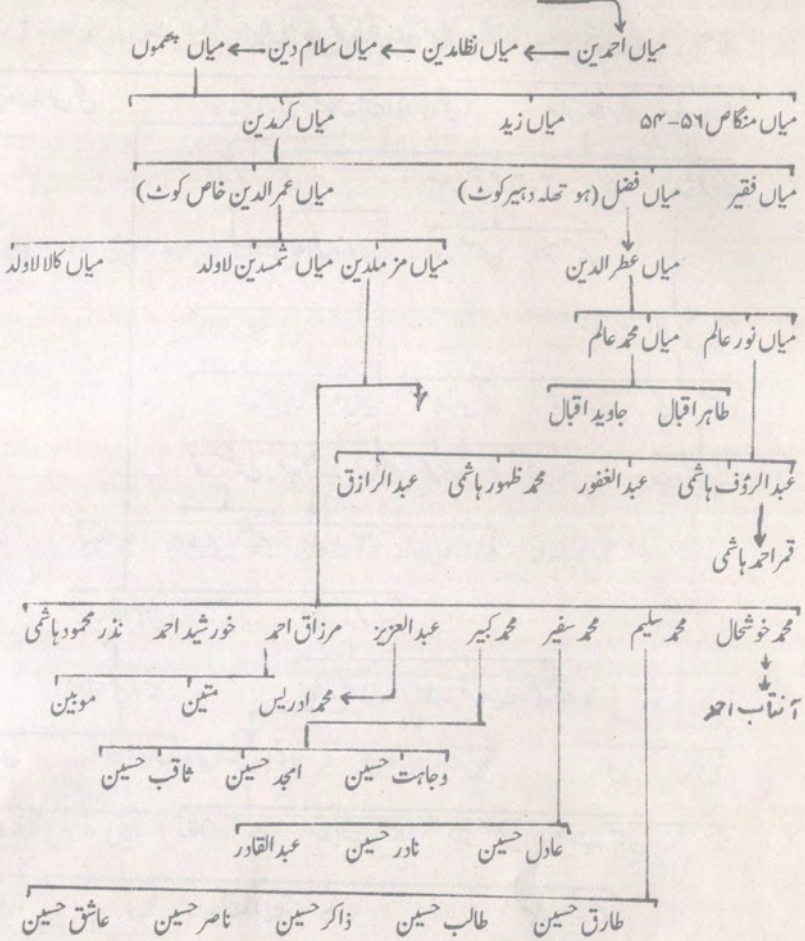 میاں احمدین ← میاں نظامدین ← میاں سلام دین ← میاں بھموں
میاں منگا ص ۵۶-۵۴ میاں زید میاں کرمدین
میاں فقیر میاں فضل (ہو تھلہ دہیر کوٹ) میاں عمرالدین خاص کوٹ)
میاں عطرالدین میاں مزملدین میاں شمسدین لاولد میاں کالا لاولد
میاں نور عالم میاں محمد عالم
طاہر اقبال جاوید اقبال
عبدالرؤف ہاشمی عبدالغفور محمد ظہور ہاشمی عبدالرازق
قمر احمد ہاشمی
محمد خوشحال محمد سلیم محمد سفیر محمد کبیر عبدالعزیز مرزاق احمد خورشید احمد نذر محمود ہاشمی
آفتاب احمد محمد ادریس متین موبین
وجاہت حسین امجد حسین ثاقب حسین
عادل حسین نادر حسین عبدالقادر
طارق حسین طالب حسین ذاکر حسین ناصر حسین عاشق حسین